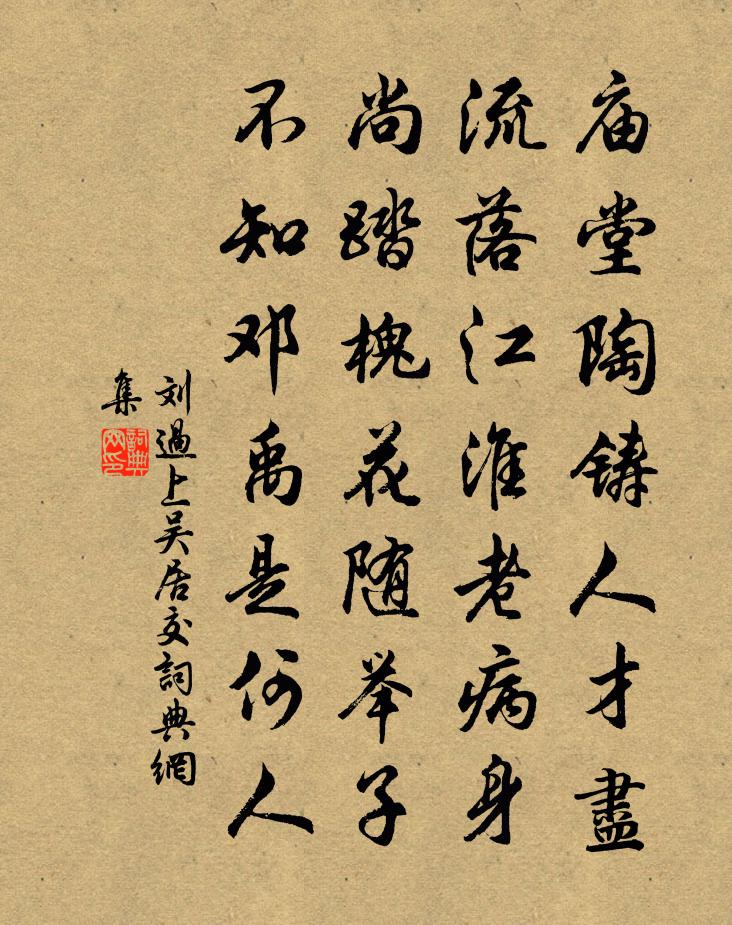 庙堂陶铸人才盡
流落江淮老病身
尚踏槐花随举子
不知邓禹是何人
刘過上吴居父詞典網
集
詞典網印